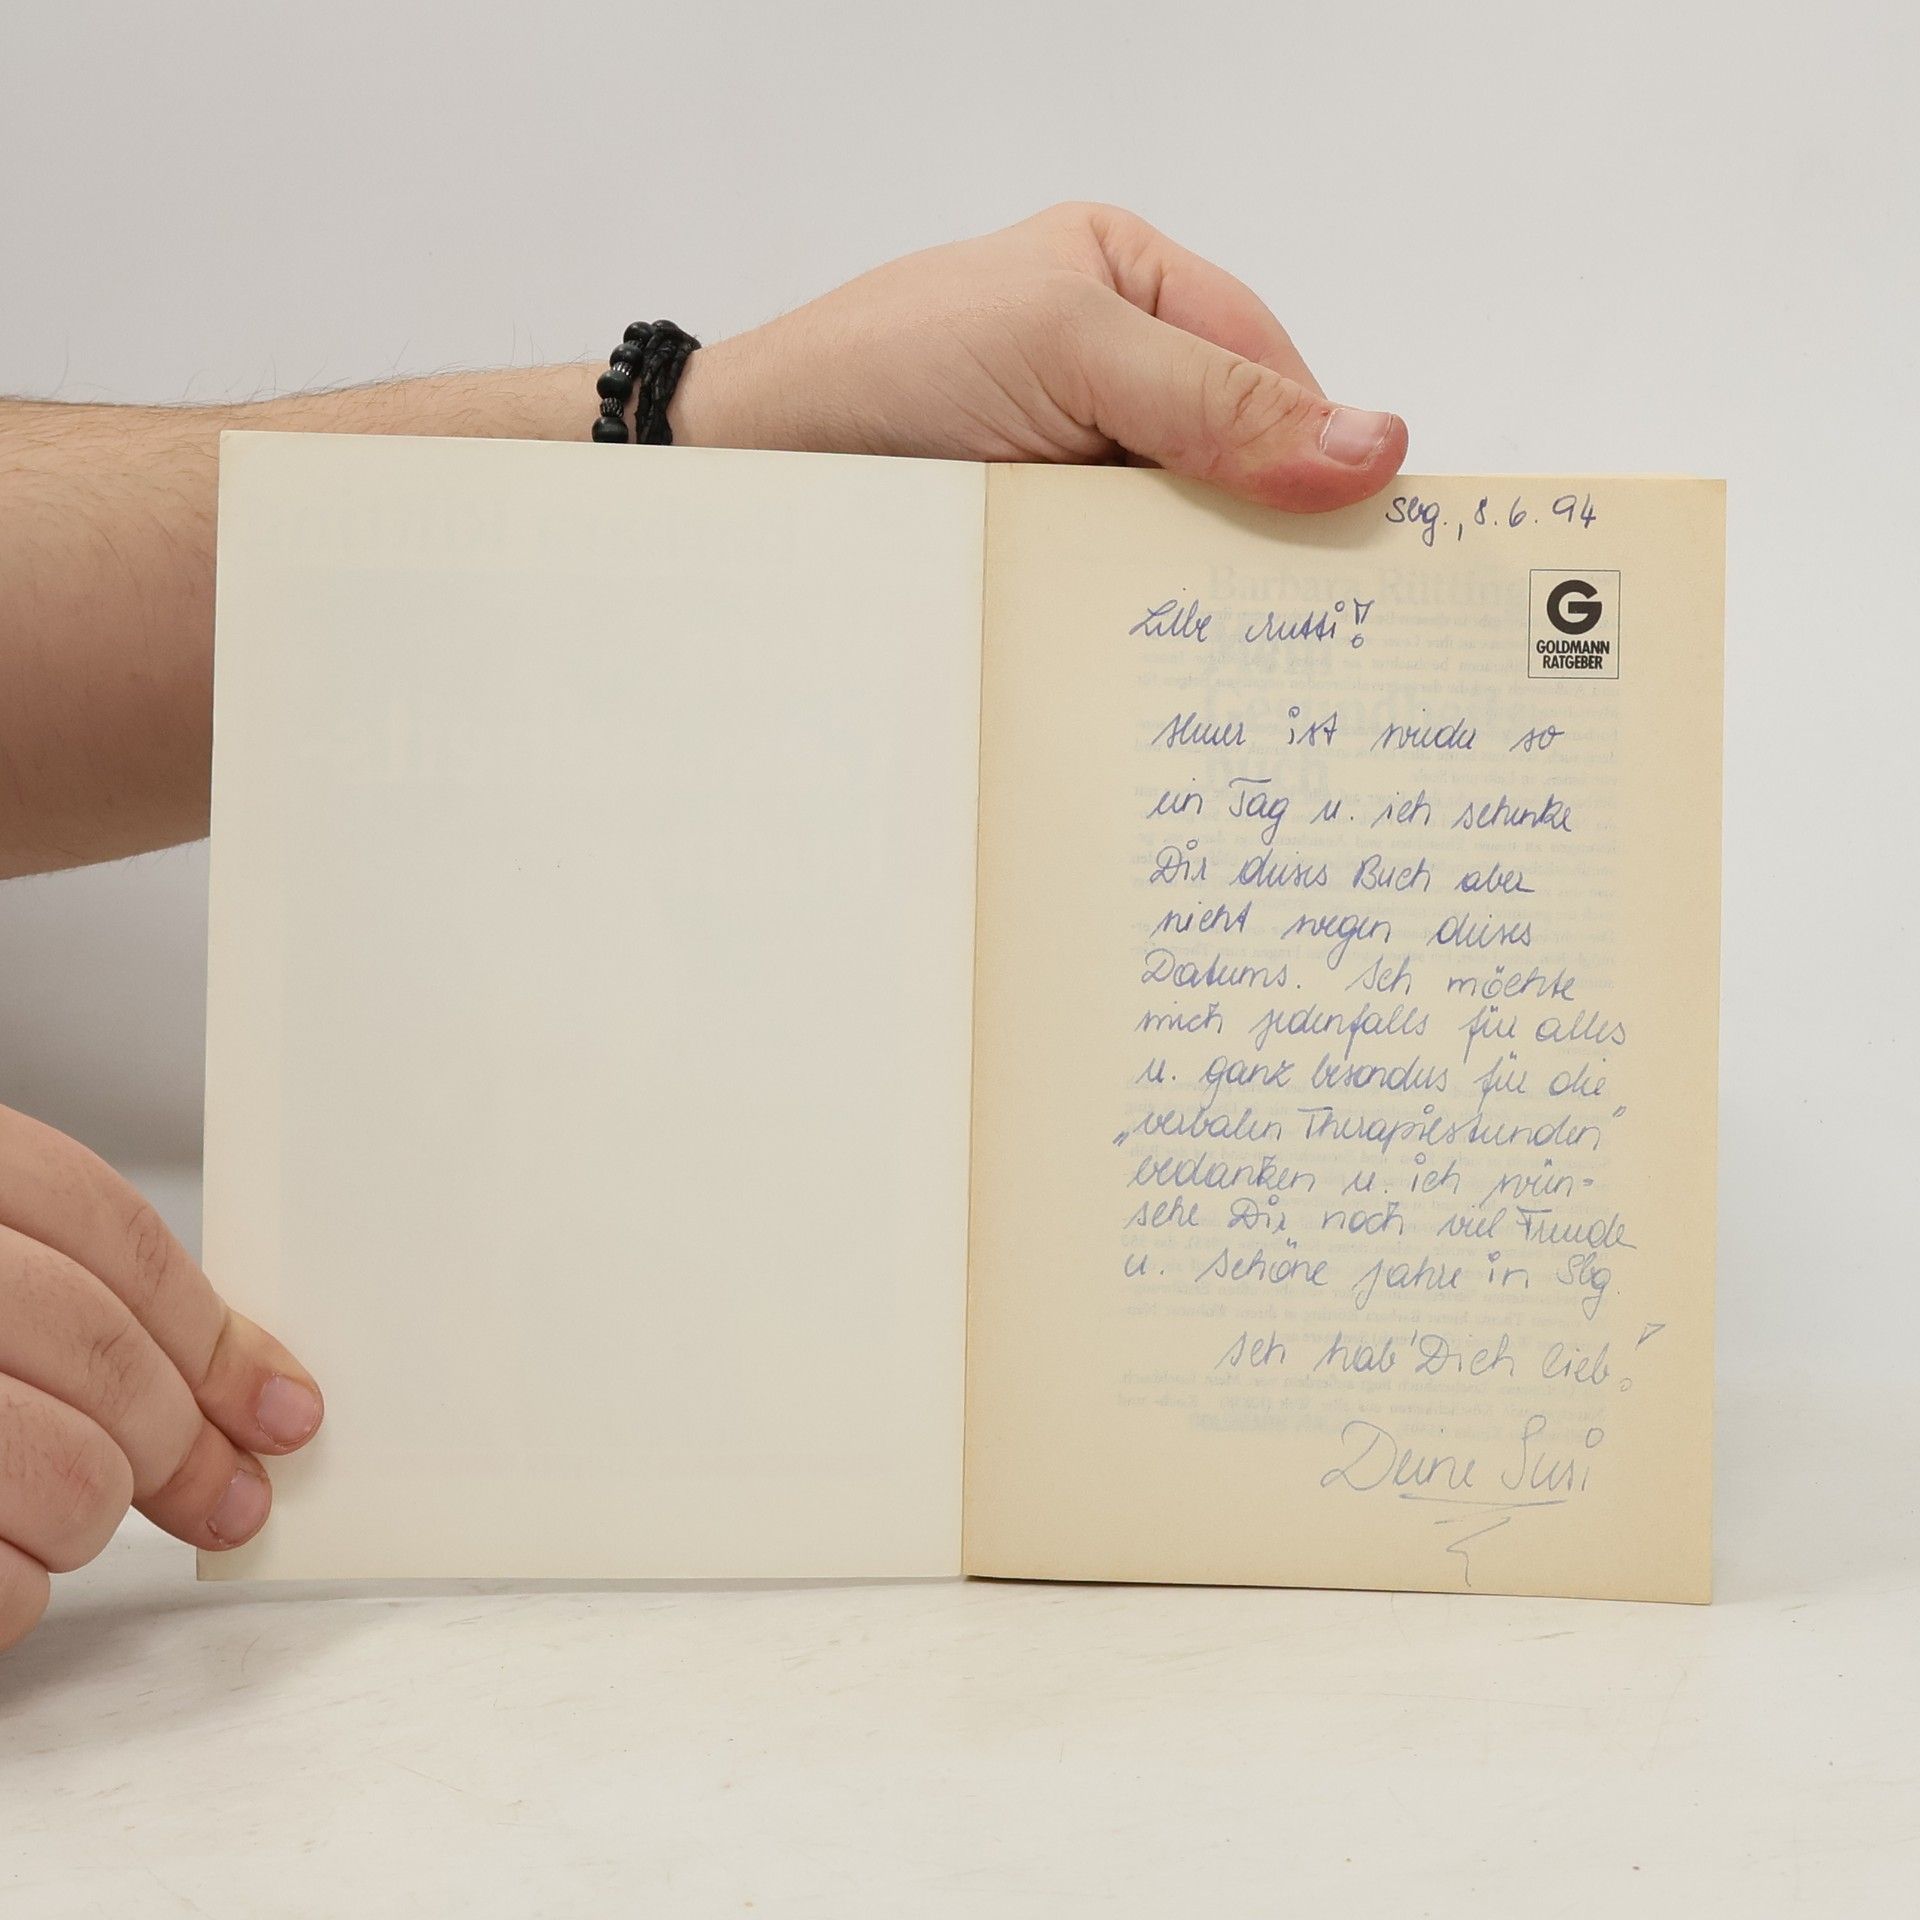 Sbg., 8.6.94
G
GOLDMANN
RATGEBER
Liebe Mutti!
Heuer ist wieder so
ein Tag u. ich schenke
Dir dieses Buch aber
nicht wegen dieses
Datums. Ich möchte
mich jedenfalls für alles
u. ganz besonders für die
„verbalen Therapiestunden"
bedanken u. ich wün=
sche Dir noch viel Freude
u. schöne Jahre in Sbg.
Ich hab' Dich lieb!
Deine Susi